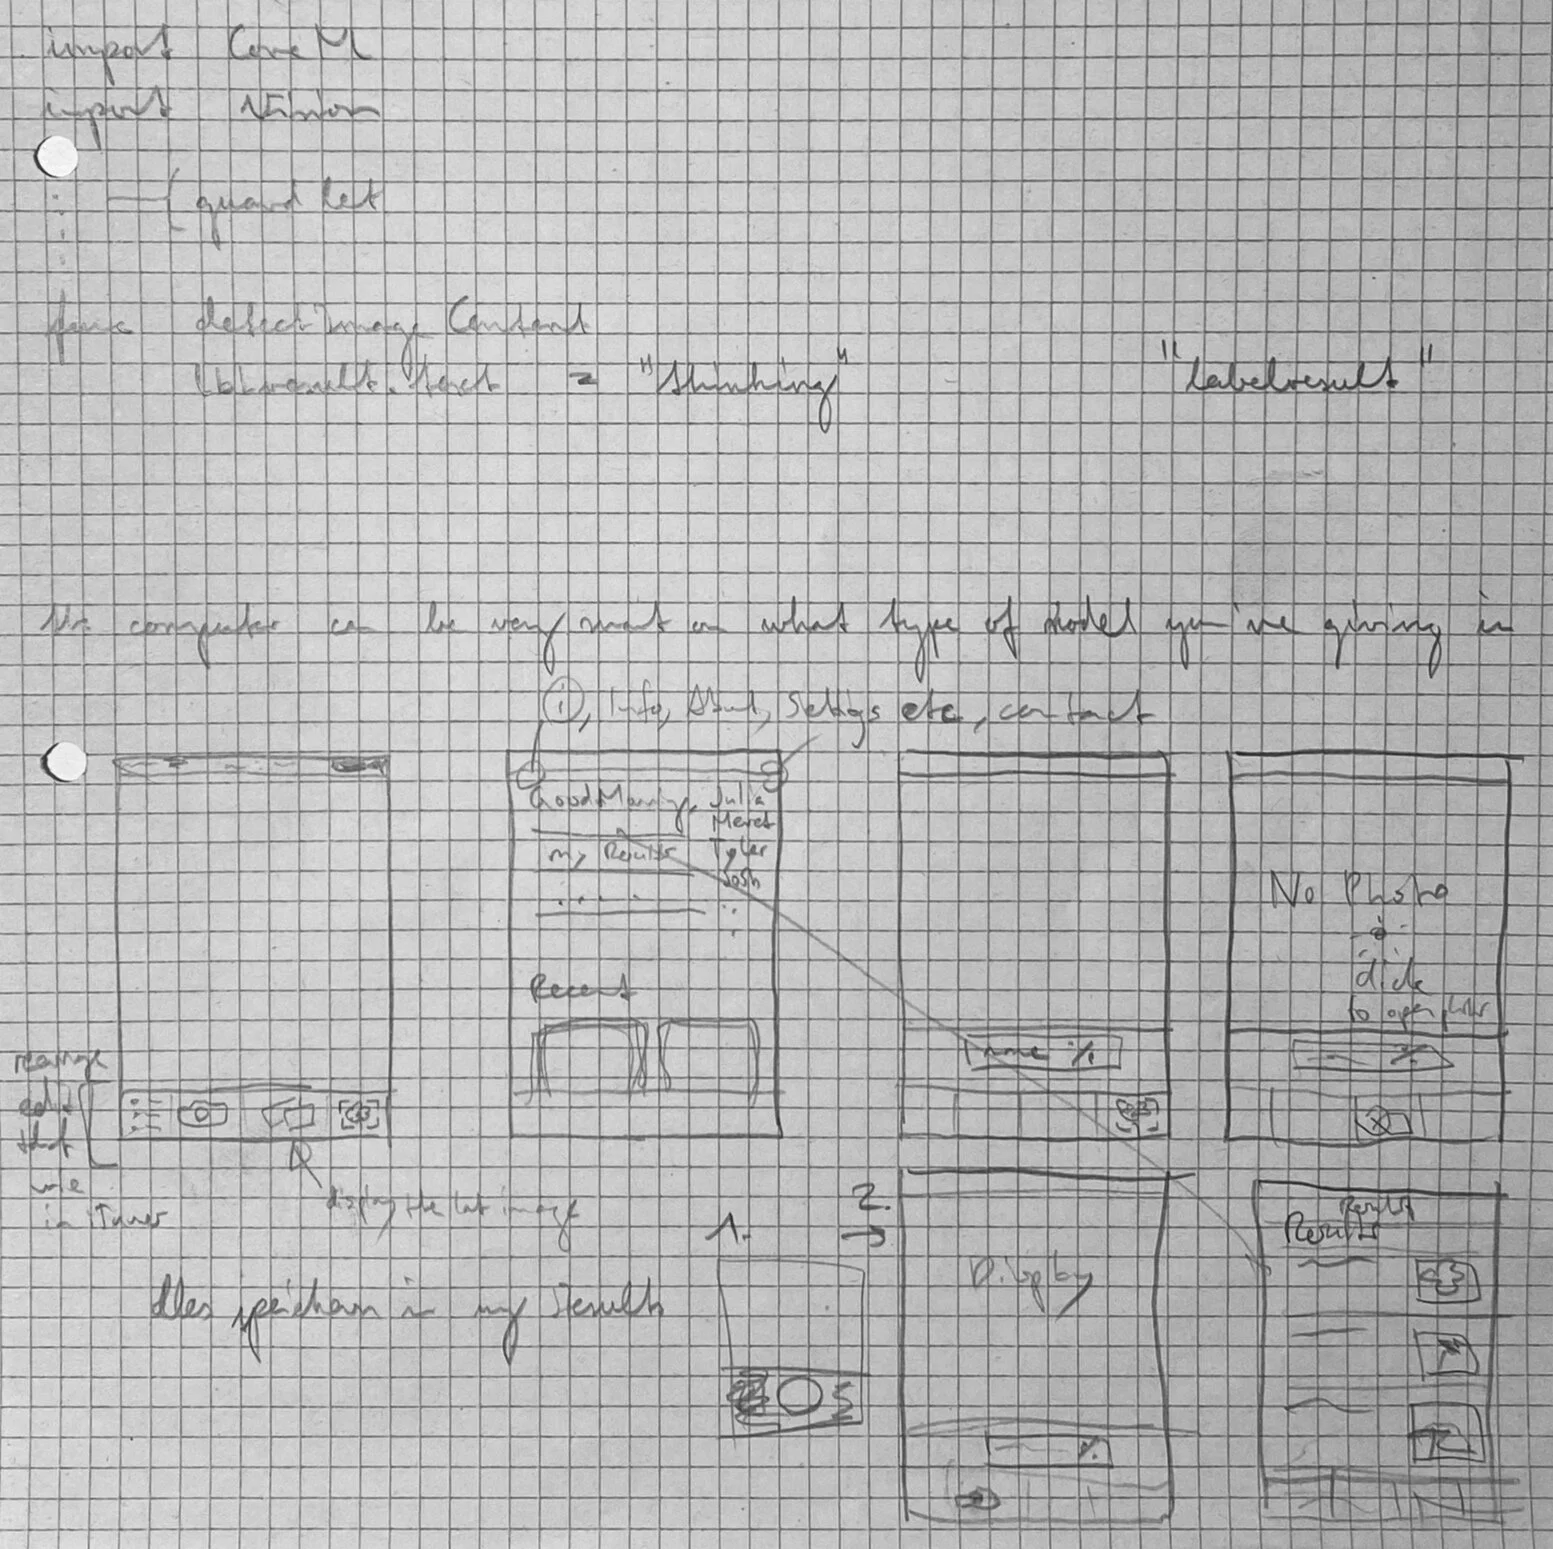 import CoreM
import Vision
guard let
func detectImage Content
lblresult.text = "thinking" "labelresult"
the computer can be very smart on what type of model you're giving in
i, Info, About, Settigs etc, contact
Good Morning, Julia
my Results Tyler
Josh
Recent
No Photo
click
to open
name %
rearrange
that
in iTunes
display the last image
1.
2.
Display
%
Results
Results
Alles speichern in my results